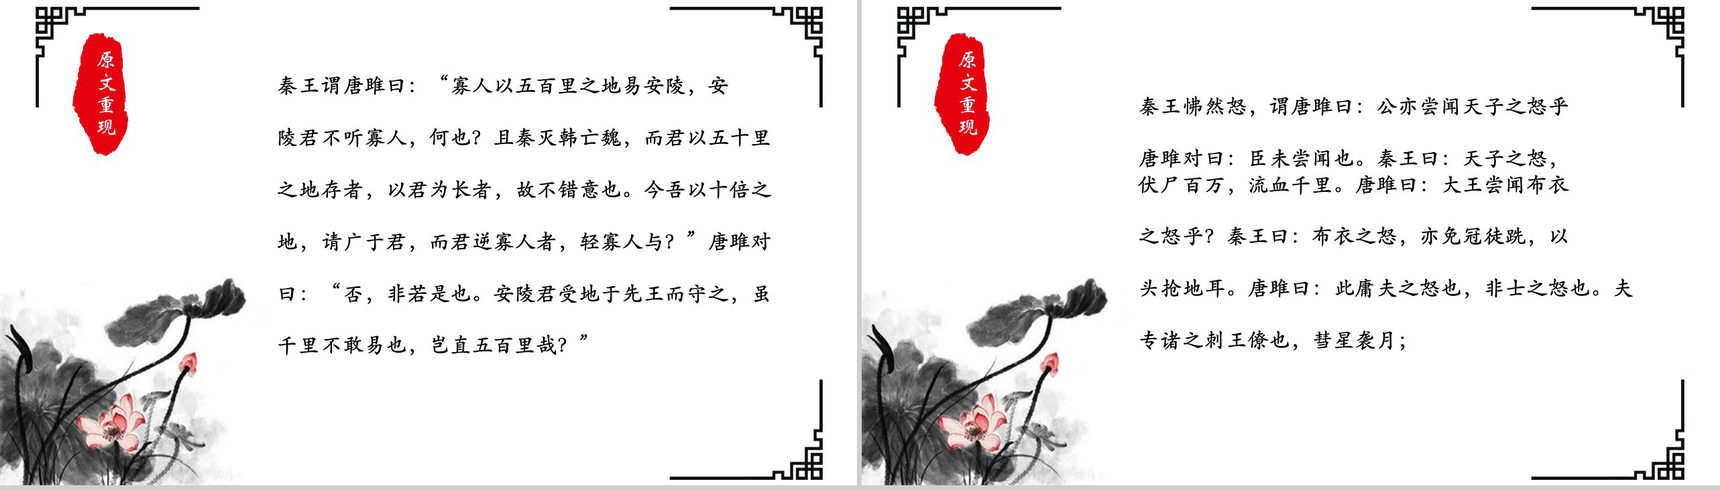 原文重现
秦王谓唐雎曰：“寡人以五百里之地易安陵，安
陵君不听寡人，何也？且秦灭韩亡魏，而君以五十里
之地存者，以君为长者，故不错意也。今吾以十倍之
地，请广于君，而君逆寡人者，轻寡人与？”唐雎对
曰：“否，非若是也。安陵君受地于先王而守之，虽
千里不敢易也，岂直五百里哉？”
原文重现
秦王怫然怒，谓唐雎曰：公亦尝闻天子之怒乎
唐雎对曰：臣未尝闻也。秦王曰：天子之怒，
伏尸百万，流血千里。唐雎曰：大王尝闻布衣
之怒乎？秦王曰：布衣之怒，亦免冠徒跣，以
头抢地耳。唐雎曰：此庸夫之怒也，非士之怒也。夫
专诸之刺王僚也，彗星袭月；